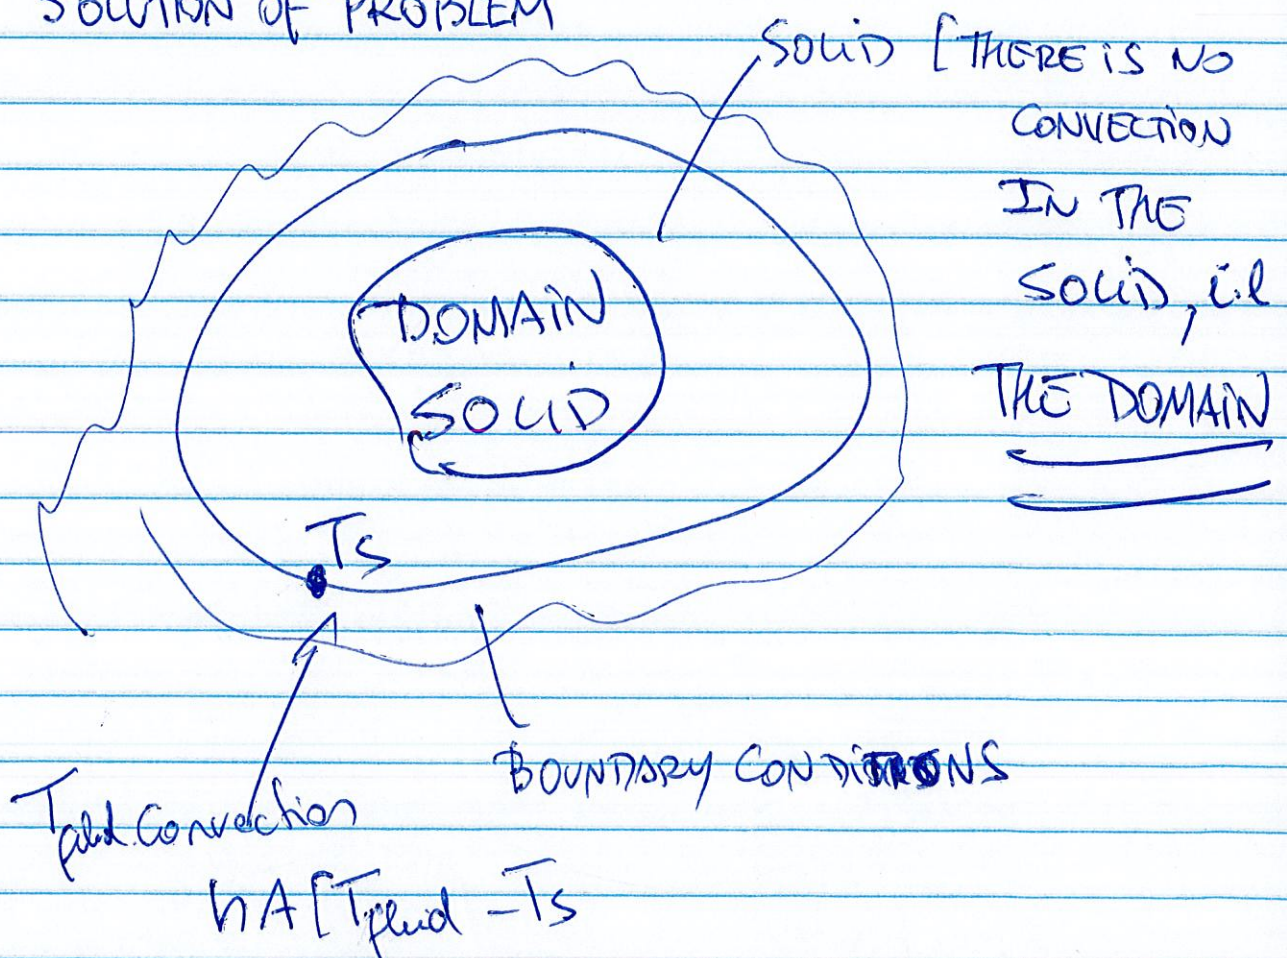 SOLUTION OF PROBLEM
SOLID [THERE IS NO
CONVECTION
IN THE
SOLID, i.e
THE DOMAIN
DOMAIN
SOLID
Ts
BOUNDARY CONDITIONS
Tfluid Convection
hA[Tfluid - Ts